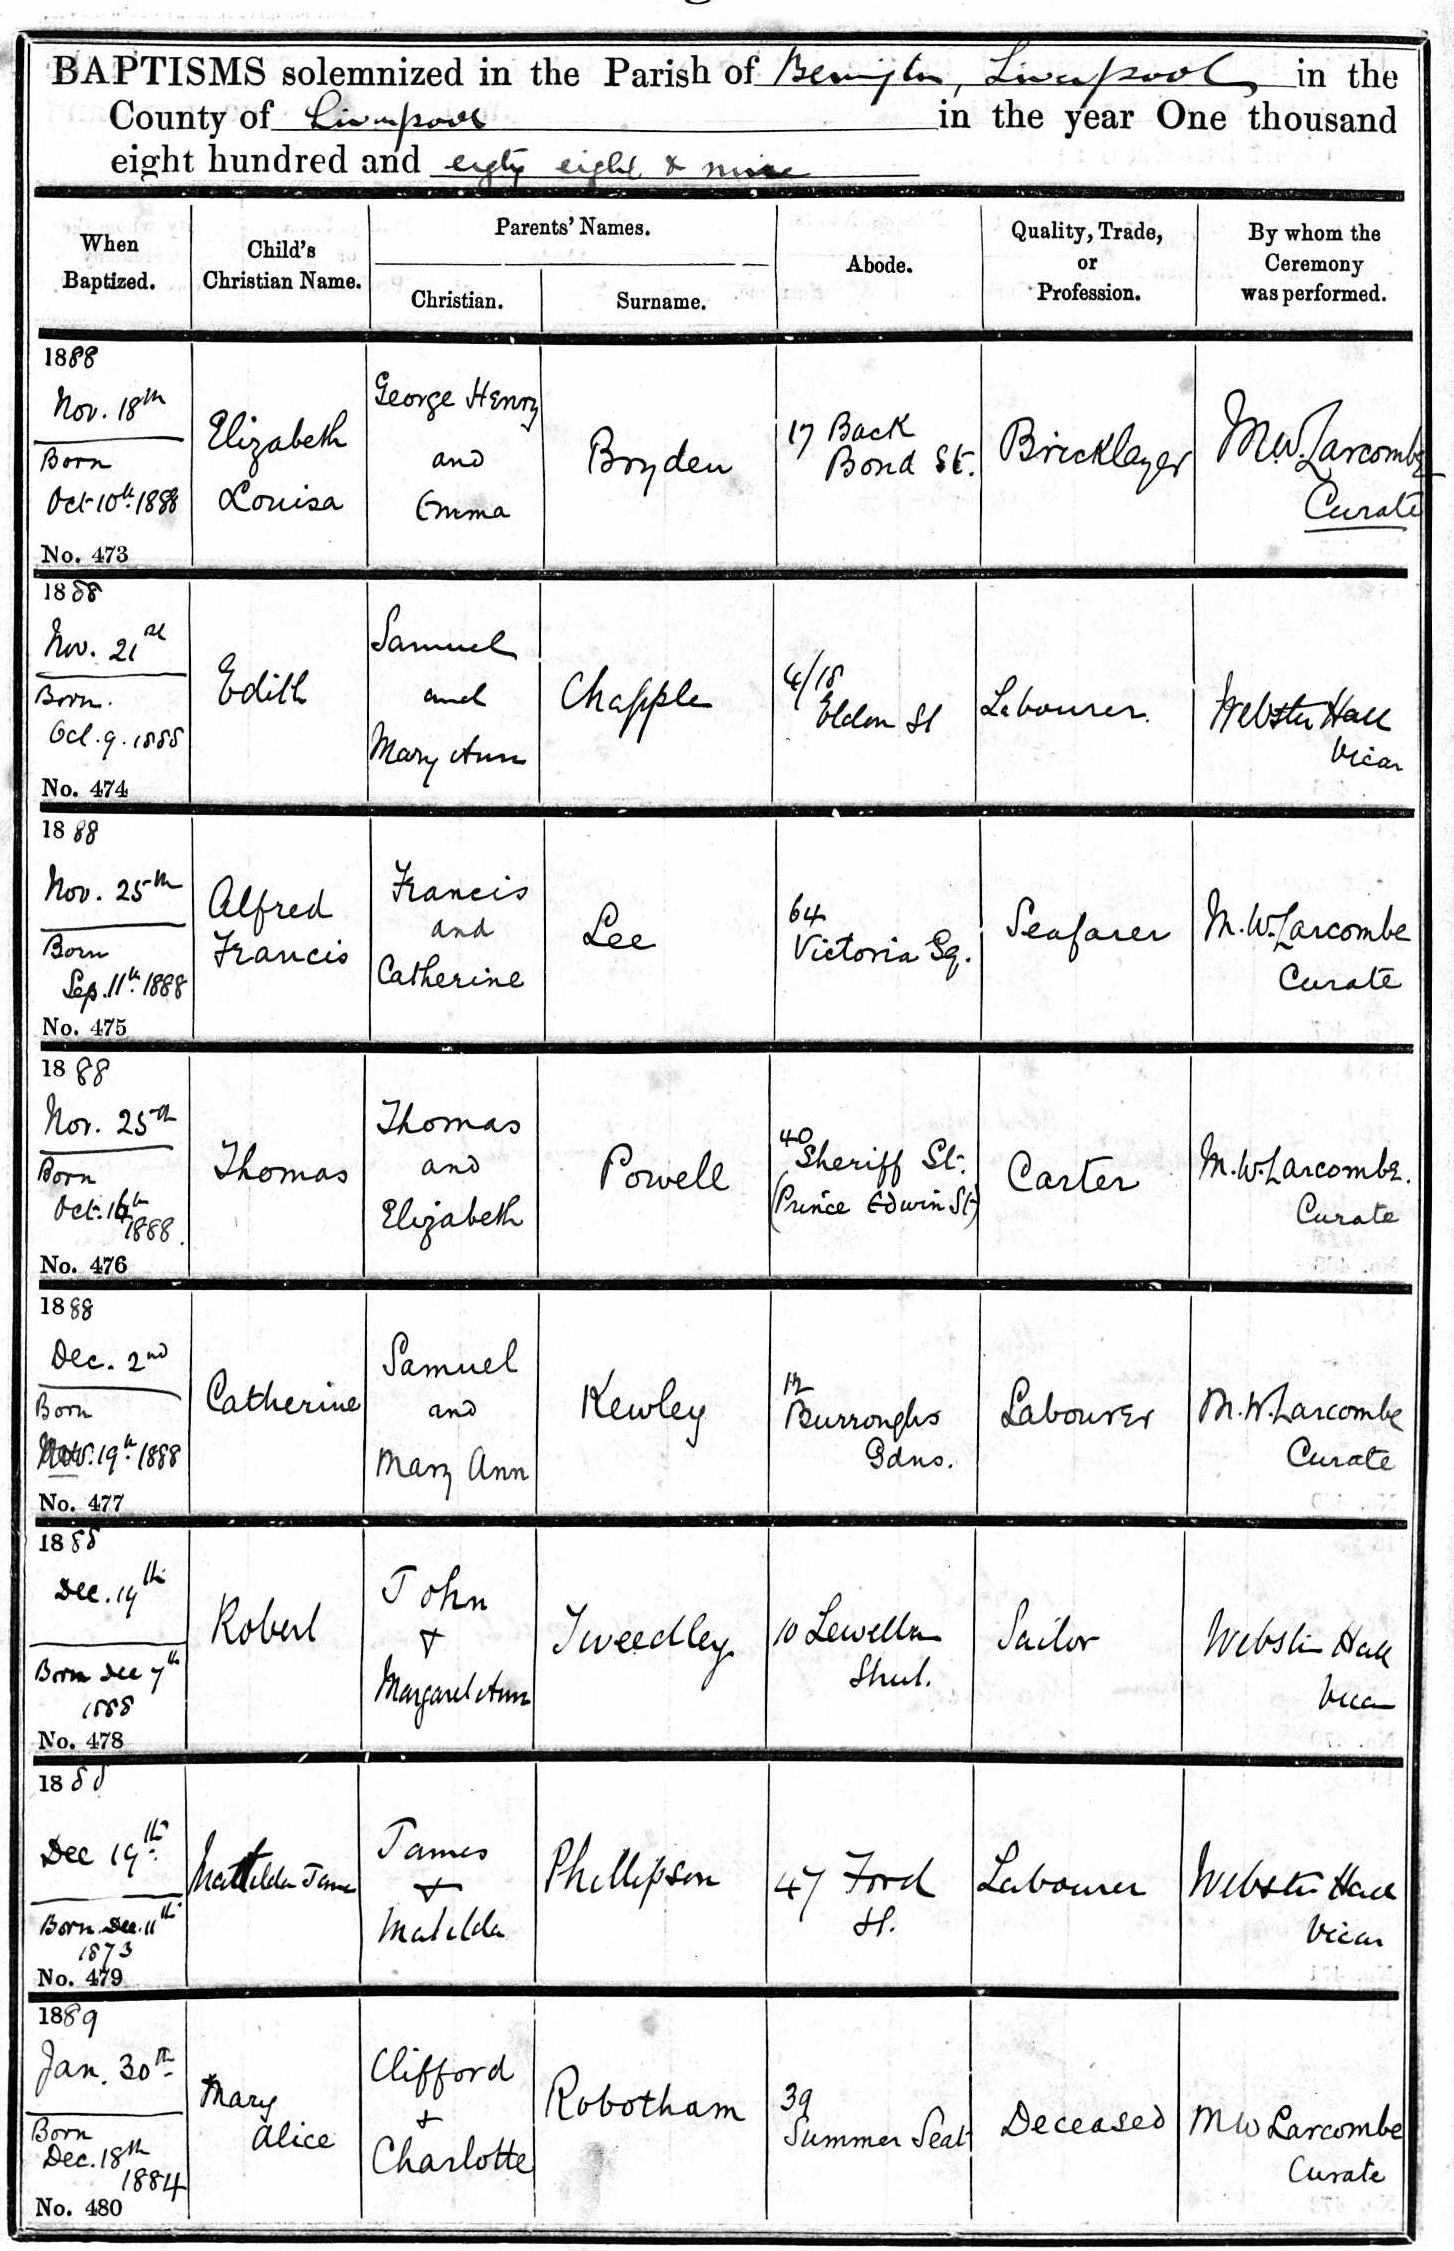 BAPTISMS solemnized in the Parish of Bevington, Liverpool in the
County of Liverpool in the year One thousand
eight hundred and eighty eight & nine
When Baptized.
Child's Christian Name.
Parents' Names.
Christian.
Surname.
Abode.
Quality, Trade, or Profession.
By whom the Ceremony was performed.
1888
Nov. 18th
Born
Oct 10th 1888
No. 473
Elizabeth
Louisa
George Henry
and
Emma
Bryden
17 Back
Bond St.
Bricklayer
M.W. Larcombe
Curate
1888
Nov. 21st
Born.
Oct. 9. 1888
No. 474
Edith
Samuel
and
Mary Ann
Chapple
4/18
Eldon St
Labourer.
Webster Hall
Vicar
1888
Nov. 25th
Born
Sep. 11th 1888
No. 475
Alfred
Francis
Francis
and
Catherine
Lee
64
Victoria Sq.
Seafarer
M. W. Larcombe
Curate
1888
Nov. 25th
Born
Oct. 16th
1888.
No. 476
Thomas
Thomas
and
Elizabeth
Powell
40
Sheriff St.
(Prince Edwin St)
Carter
M. W. Larcombe.
Curate
1888
Dec. 2nd
Born
Nov. 19th 1888
No. 477
Catherine
Samuel
and
Mary Ann
Kewley
12
Burroughs
Gdns.
Labourer
M. W. Larcombe
Curate
1888
Dec. 19th
Born Dec 7th
1888
No. 478
Robert
John
+
Margaret Ann
Tweedley
10 Lewellen
Street.
Sailor
Webster Hall
Vicar
1888
Dec 19th
Born Dec. 11th
1873
No. 479
Matilda Jane
James
+
Matilda
Phillipson
47 Ford
St.
Labourer
Webster Hall
Vicar
1889
Jan. 30th
Born
Dec. 18th
1884
No. 480
Mary
Alice
Clifford
+
Charlotte
Robotham
39
Summer Seat
Deceased
M W Larcombe
Curate